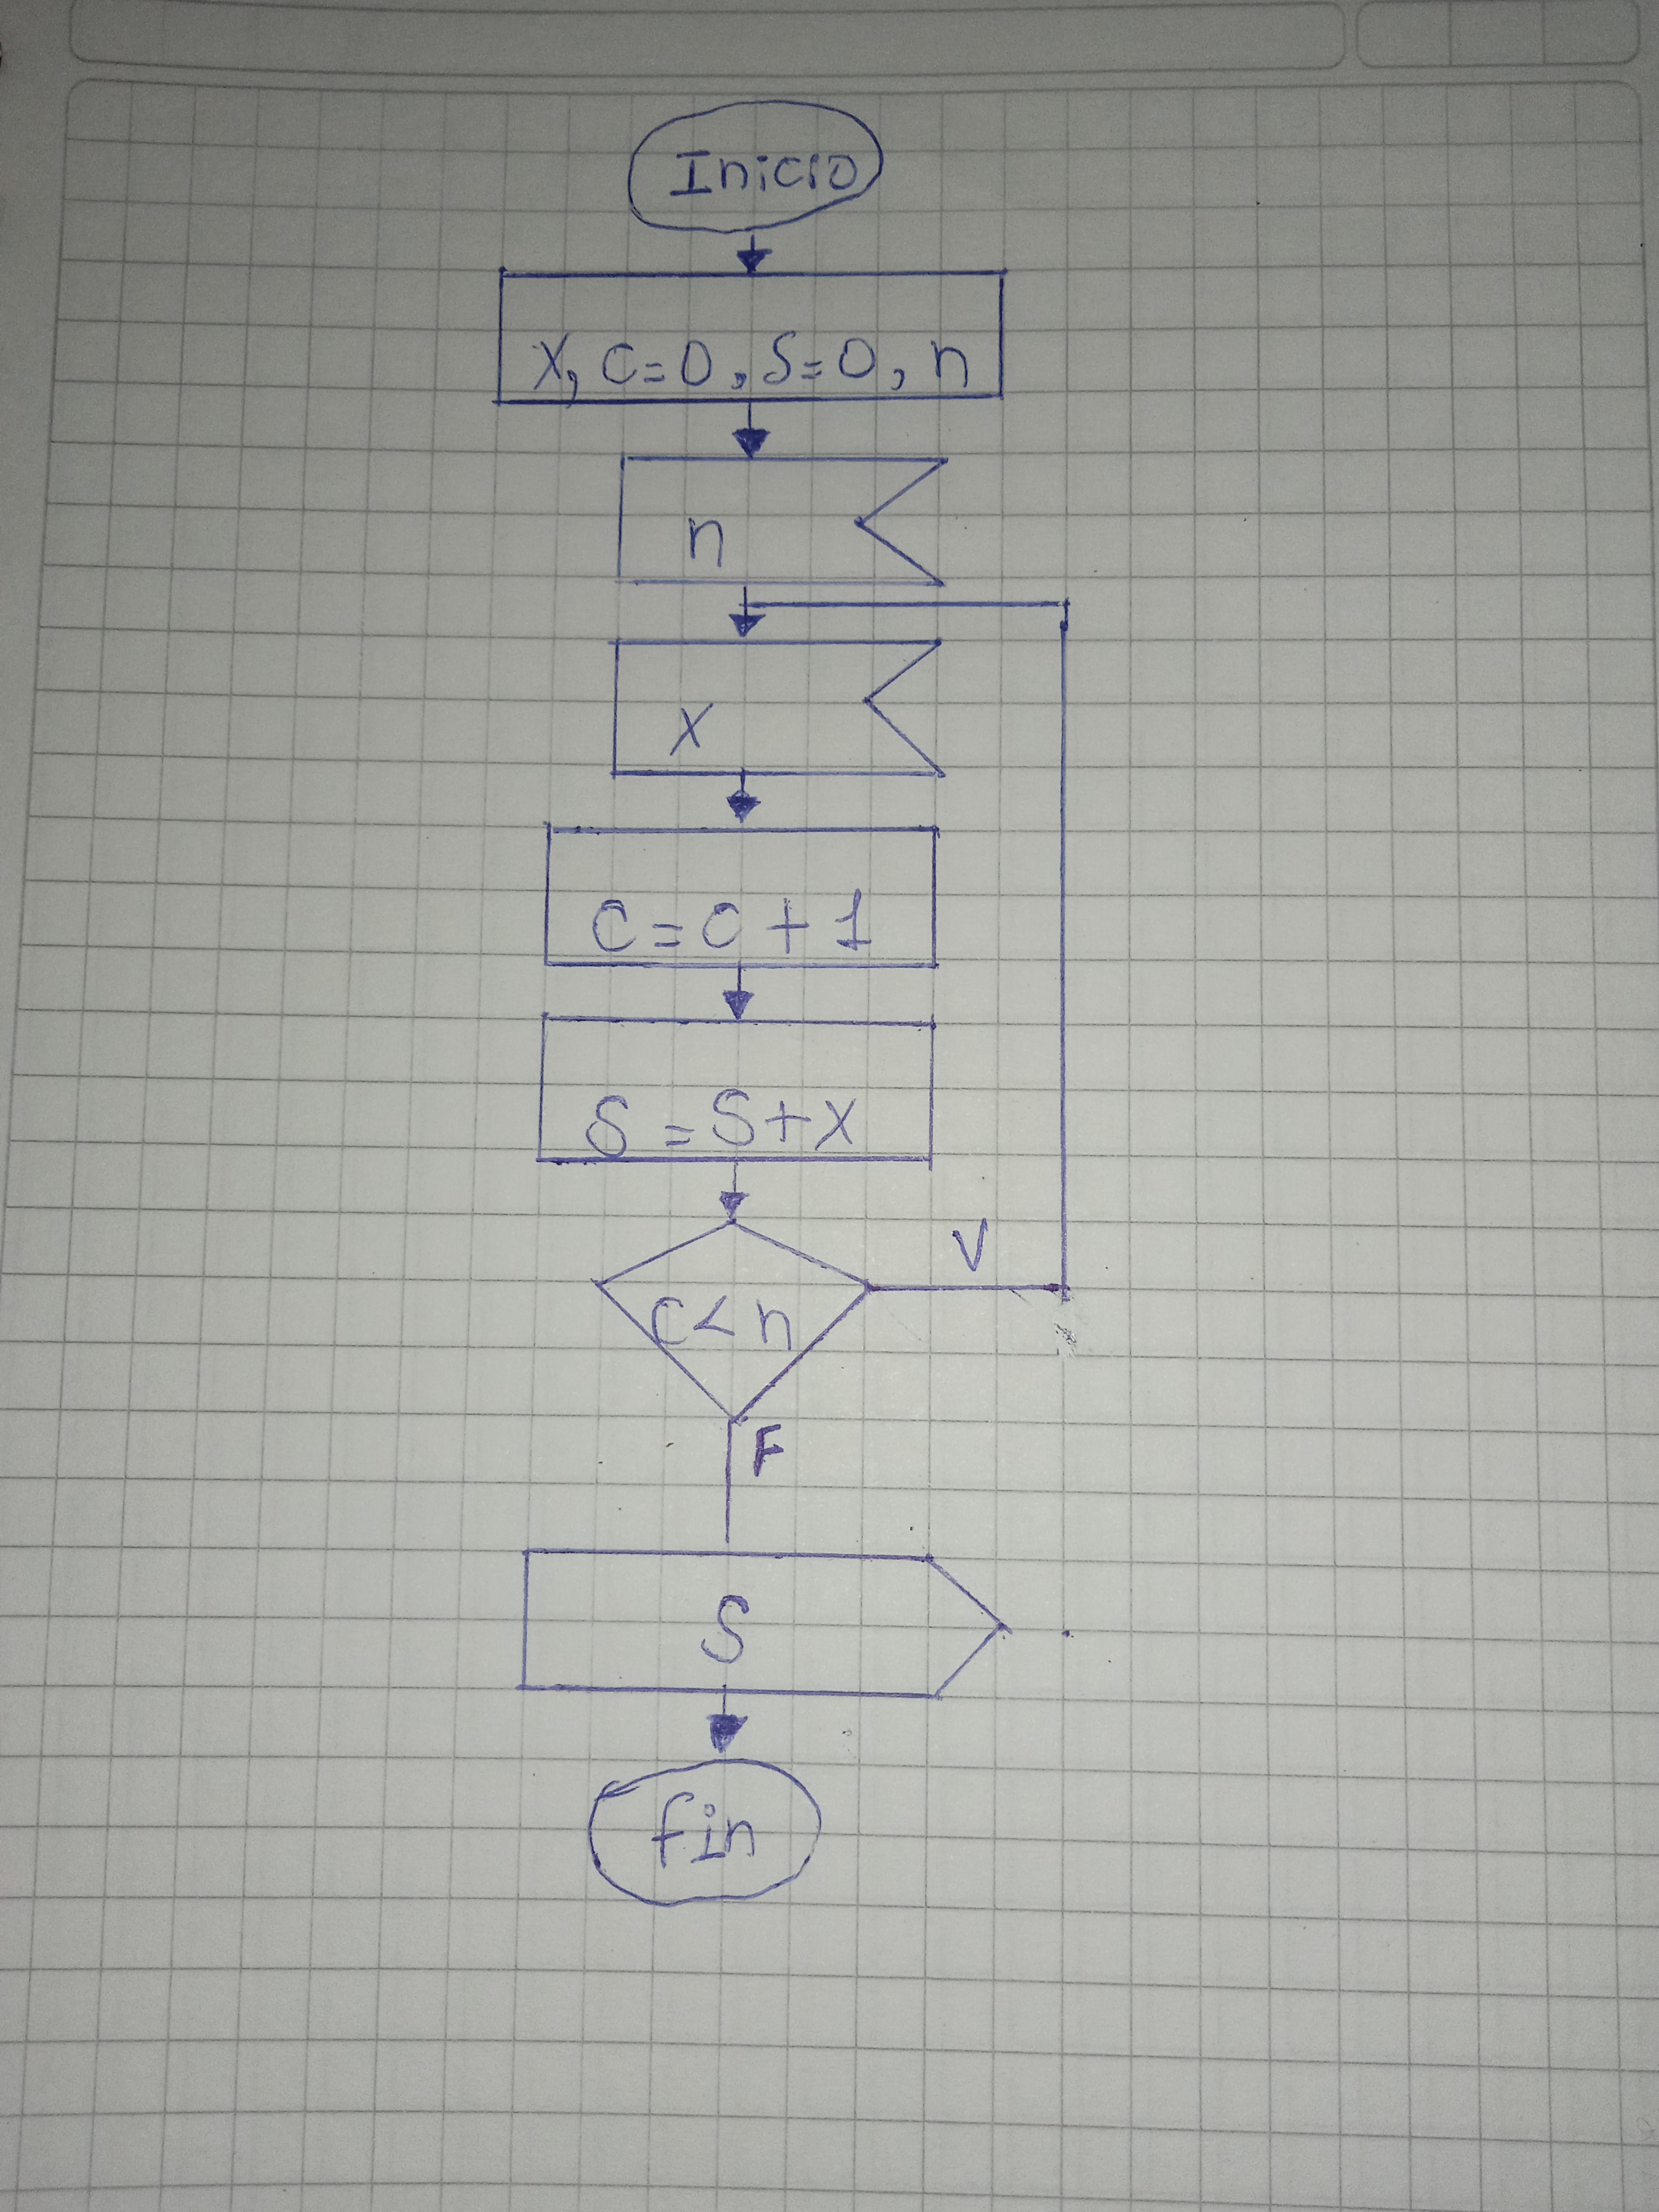 Inicio
X, C=0, S=0, n
n
X
C=C+1
S=S+X
V
C<n
F
S
fin